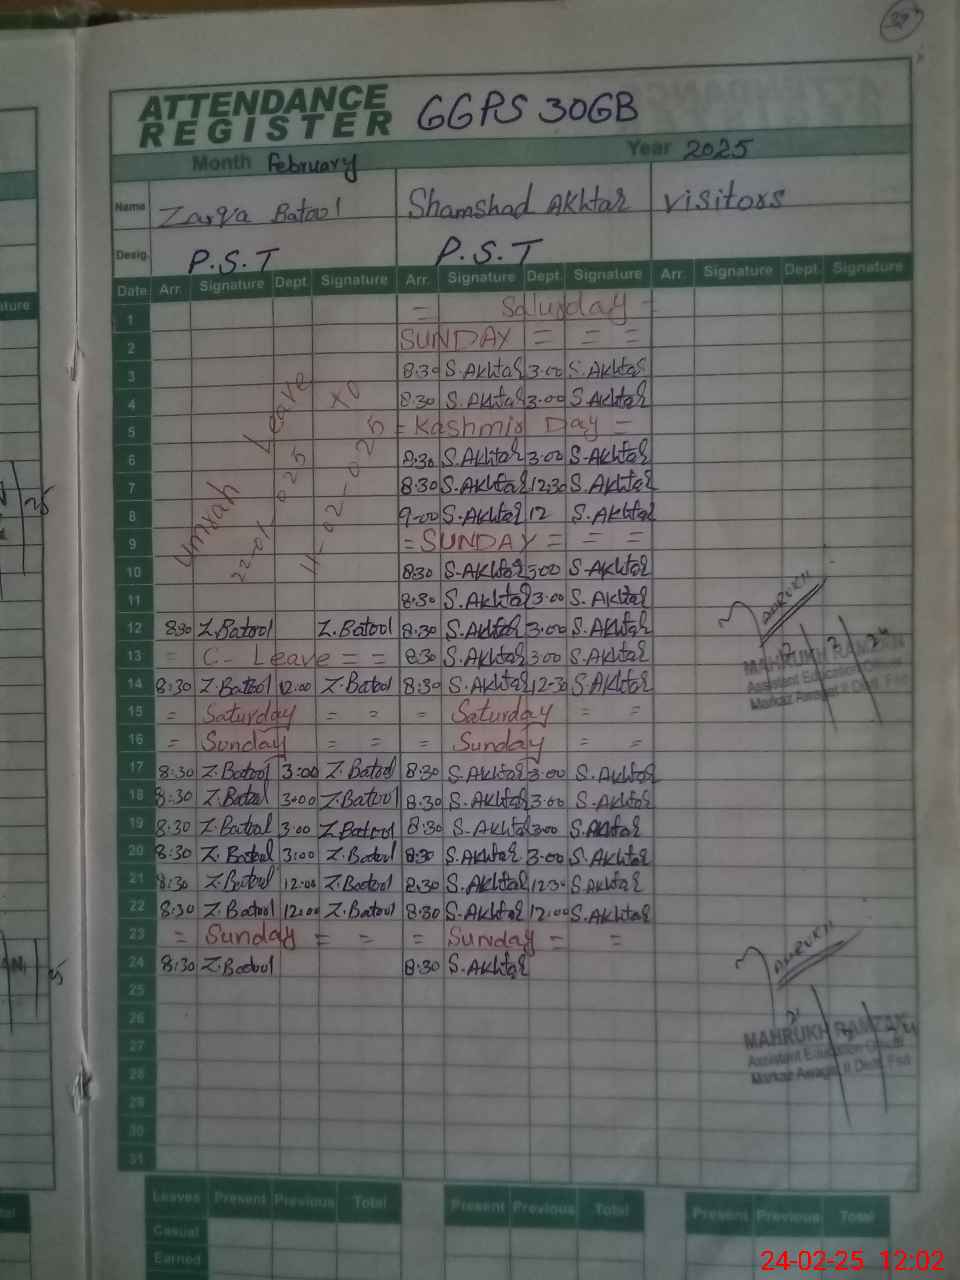 ATTENDANCE
REGISTER GGPS 30GB
Month February Year 2025
Name Zarqa Batool Shamshad Akhtar Visitors
Desig. P.S.T P.S.T
Date Arr. Signature Dept. Signature Arr. Signature Dept. Signature Arr. Signature Dept. Signature
1 = Saturday -
2 SUNDAY = = =
3 8:30 S.Akhtar 3.00 S.Akhtar
4 8:30 S.Akhtar 3.00 S.Akhtar
5 = Kashmir Day =
6 8:30 S.Akhtar 3.00 S.Akhtar
7 8:30 S.Akhtar 12:30 S.Akhtar
8 9-00 S.Akhtar 12 S.Akhtar
9 = SUNDAY = = =
10 8:30 S.Akhtar 3:00 S.Akhtar
11 8:30 S.Akhtar 3.00 S.Akhtar
Umrah Leave
22-01-025 to
11-02-025
12 8:30 Z.Batool Z.Batool 8:30 S.Akhtar 3.00 S.Akhtar
13 = C- Leave = = 8:30 S.Akhtar 3.00 S.Akhtar
14 8:30 Z.Batool 12:00 Z.Batool 8:30 S.Akhtar 12-30 S.Akhtar
15 = Saturday = = = Saturday = =
16 = Sunday = = = Sunday = =
17 8:30 Z.Batool 3:00 Z.Batool 8:30 S.Akhtar 3.00 S.Akhtar
18 8:30 Z.Batool 3:00 Z.Batool 8:30 S.Akhtar 3.00 S.Akhtar
19 8:30 Z.Batool 3:00 Z.Batool 8:30 S.Akhtar 3:00 S.Akhtar
20 8:30 Z.Batool 3:00 Z.Batool 8:30 S.Akhtar 3.00 S.Akhtar
21 8:30 Z.Batool 12:00 Z.Batool 8:30 S.Akhtar 12:30 S.Akhtar
22 8:30 Z.Batool 12:00 Z.Batool 8:30 S.Akhtar 12:00 S.Akhtar
23 = Sunday = = = Sunday = =
24 8:30 Z.Batool 8:30 S.Akhtar
25
26
27
28
29
30
31
MAHRUKH
MAHRUKH RAMZAN
Assistant Education Officer
MAHRUKH
MAHRUKH RAMZAN
Assistant Education Officer
Leaves Present Previous Total Present Previous Total Present Previous Total
Casual
Earned
24-02-25 12:02